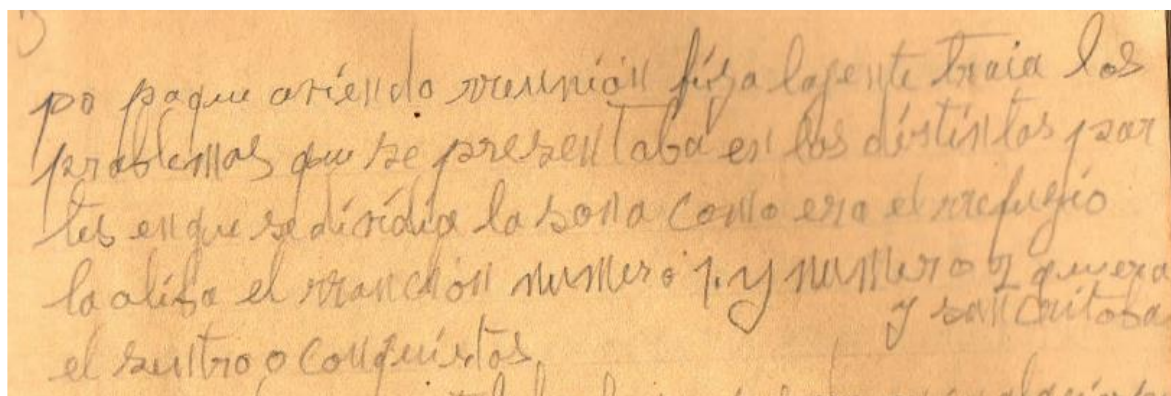 po paque ariendo rreunión fiza lagente traia los
problemas que se presentaba en los distintas par
tes enque sedividia la sona como era el rrefugio
la aliza el rranchón numero 1. y numero 2 quera
y san Critoba
el sentro o conquistas.